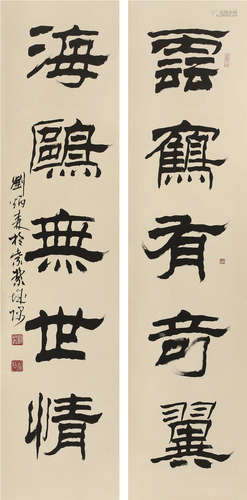 雲鶴有奇翼
海鷗無世情
劉炳森於京華